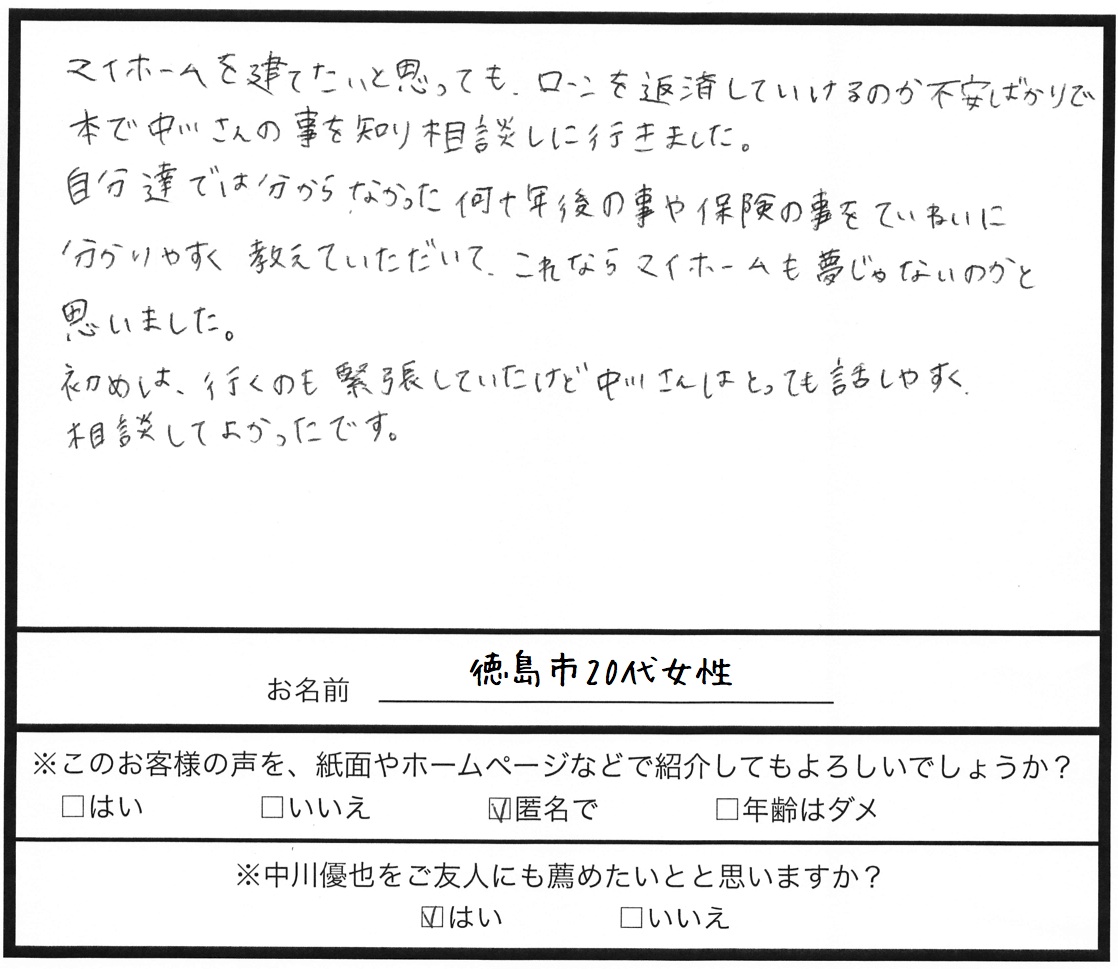 マイホームを建てたいと思っても、ローンを返済していけるのか不安ばかりで
本で中川さんの事を知り相談しに行きました。
自分達では分からなかった何十年後の事や保険の事をていねいに
分かりやすく教えていただいて、これならマイホームも夢じゃないのかと
思いました。
初めは、行くのも緊張していたけど中川さんはとっても話しやすく、
相談してよかったです。
お名前 徳島市20代女性
※このお客様の声を、紙面やホームページなどで紹介してもよろしいでしょうか？
□はい □いいえ ☑匿名で □年齢はダメ
※中川優也をご友人にも薦めたいとと思いますか？
☑はい □いいえ